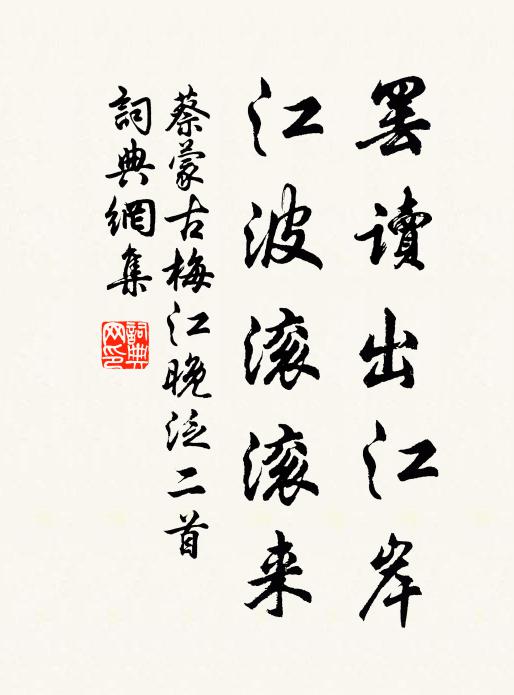 罢讀出江岸
江波滚滚来
蔡蒙古梅江晚泛二首
詞典網集
詞典网印